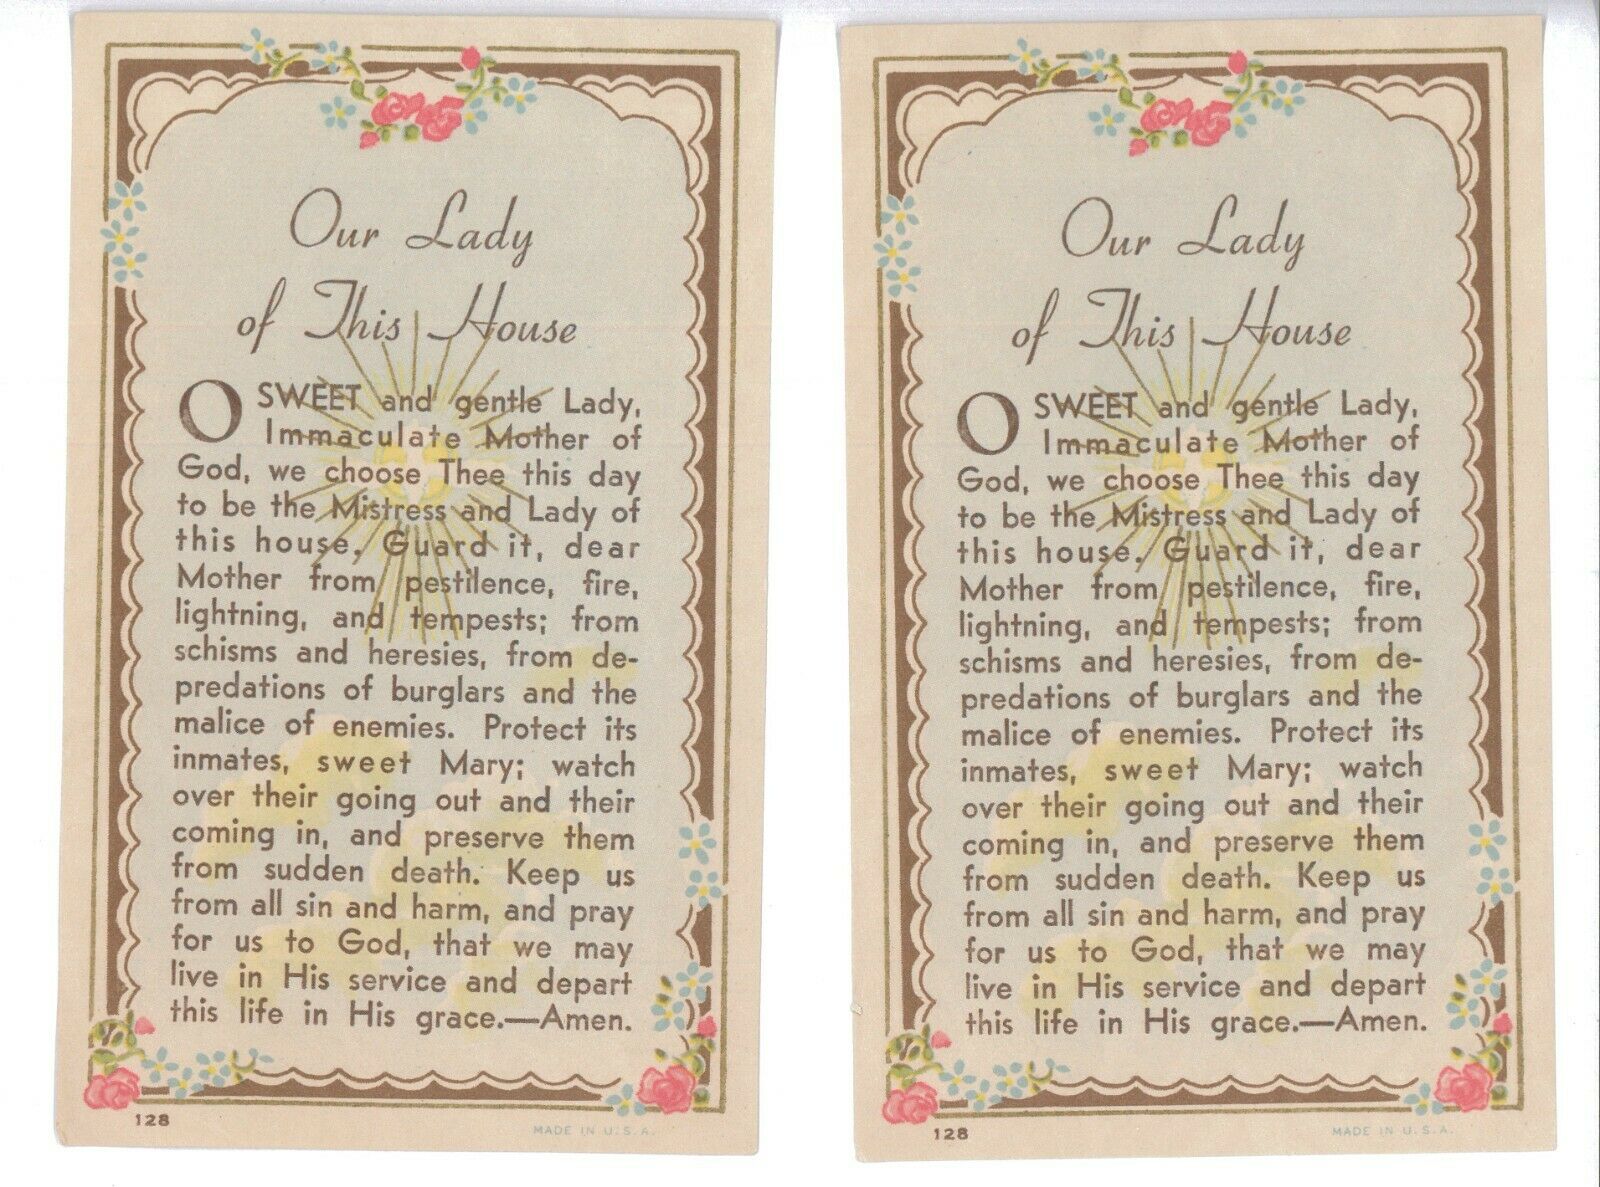 Our Lady
of This House
O SWEET and gentle Lady,
Immaculate Mother of
God, we choose Thee this day
to be the Mistress and Lady of
this house. Guard it, dear
Mother from pestilence, fire,
lightning, and tempests; from
schisms and heresies, from de-
predations of burglars and the
malice of enemies. Protect its
inmates, sweet Mary; watch
over their going out and their
coming in, and preserve them
from sudden death. Keep us
from all sin and harm, and pray
for us to God, that we may
live in His service and depart
this life in His grace.—Amen.
128
MADE IN U.S.A.
Our Lady
of This House
O SWEET and gentle Lady,
Immaculate Mother of
God, we choose Thee this day
to be the Mistress and Lady of
this house. Guard it, dear
Mother from pestilence, fire,
lightning, and tempests; from
schisms and heresies, from de-
predations of burglars and the
malice of enemies. Protect its
inmates, sweet Mary; watch
over their going out and their
coming in, and preserve them
from sudden death. Keep us
from all sin and harm, and pray
for us to God, that we may
live in His service and depart
this life in His grace.—Amen.
128
MADE IN U.S.A.